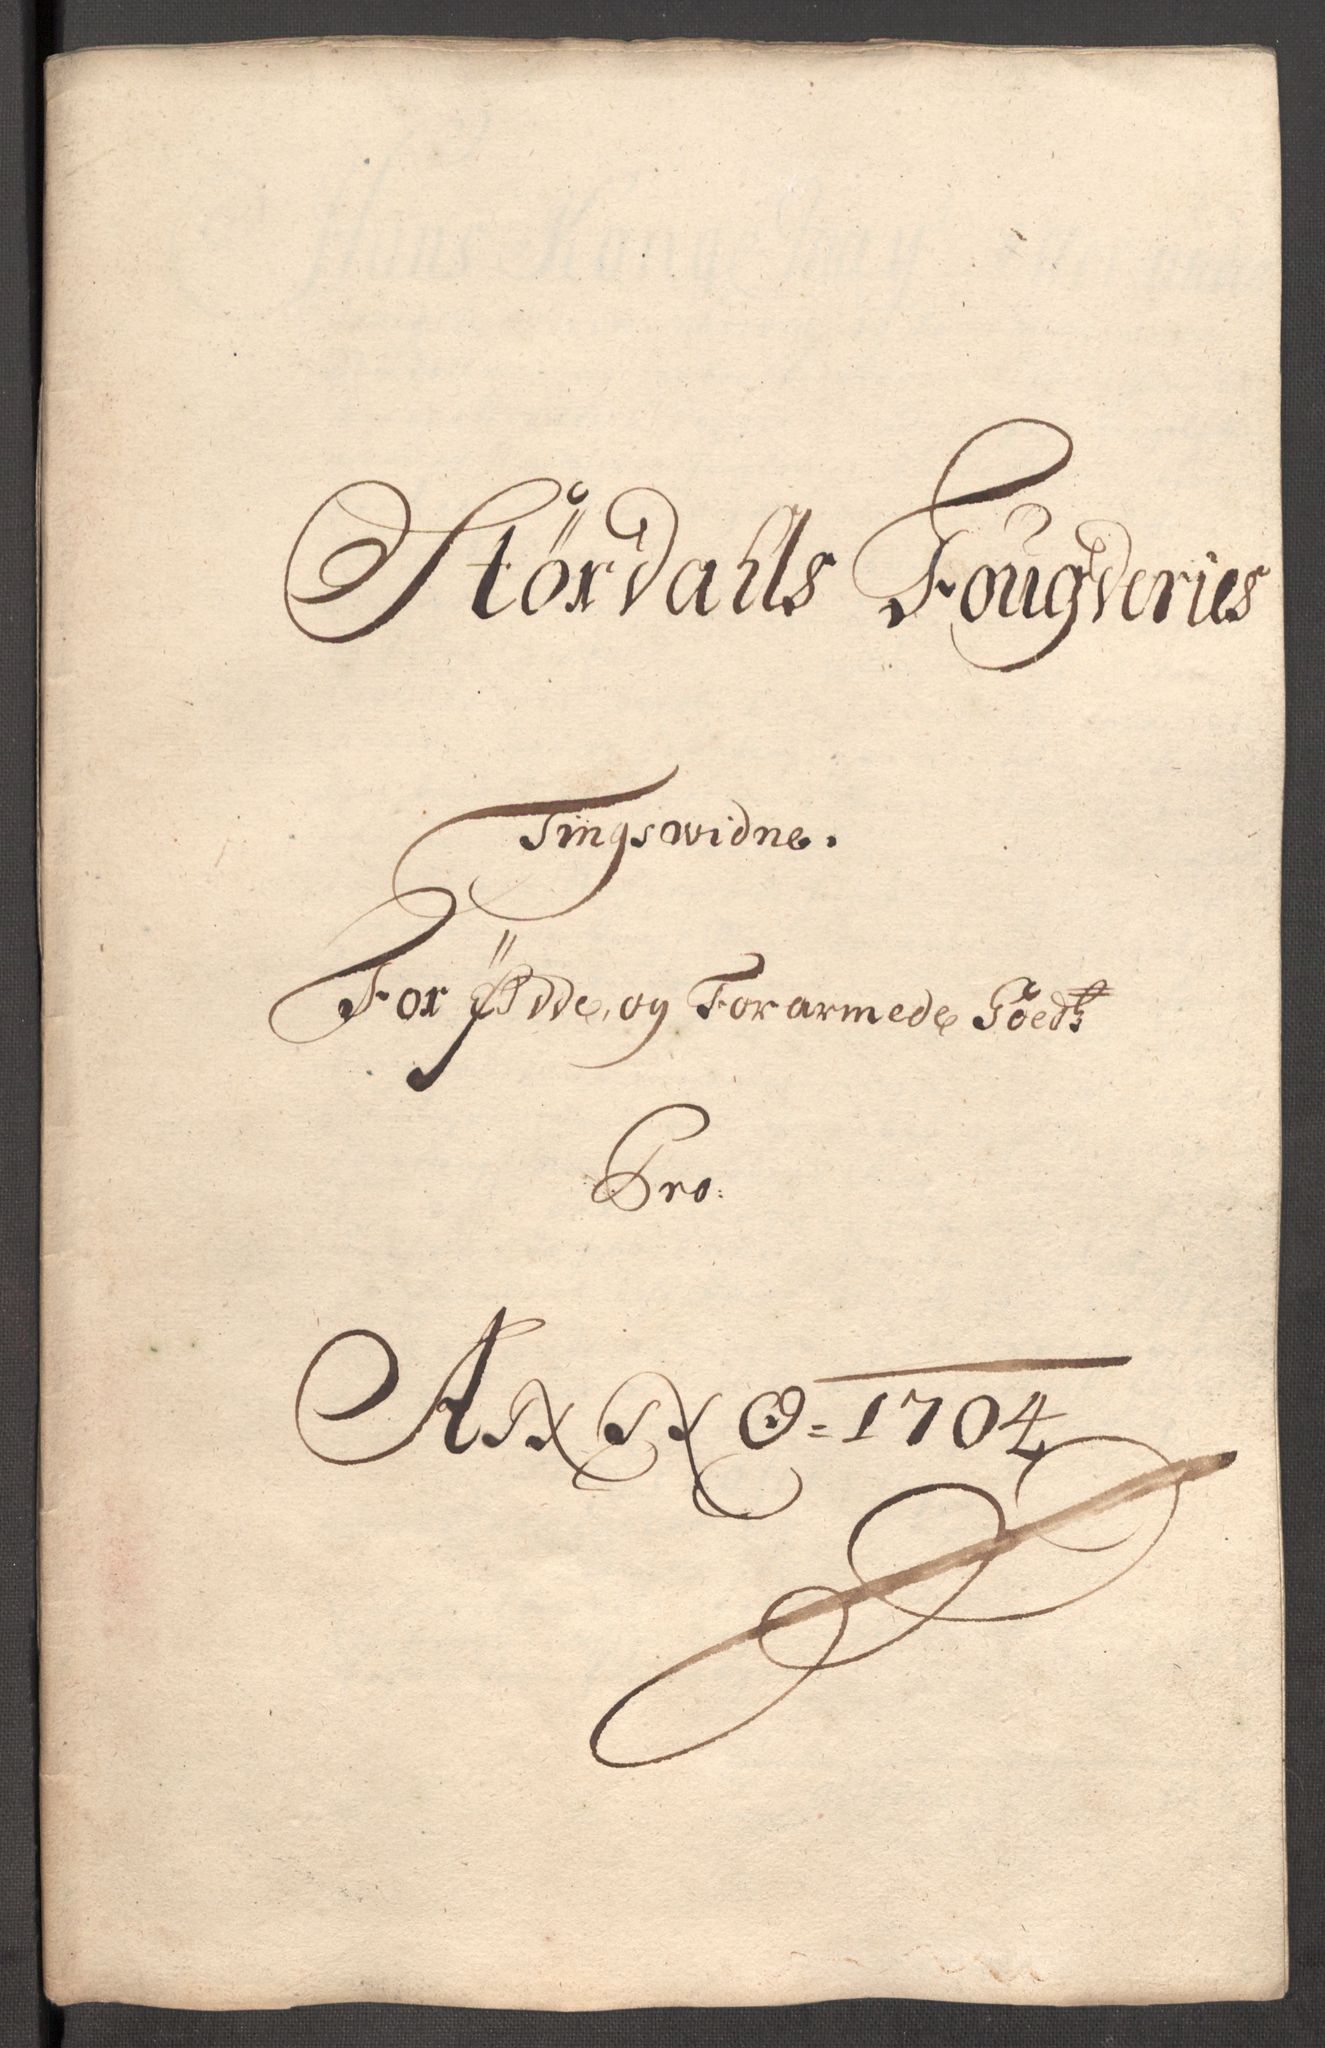 Størdahls Fougderies
Tingswidne.
For Øde, og Forarmede Goedtz
Pro:
ANNO = 1704